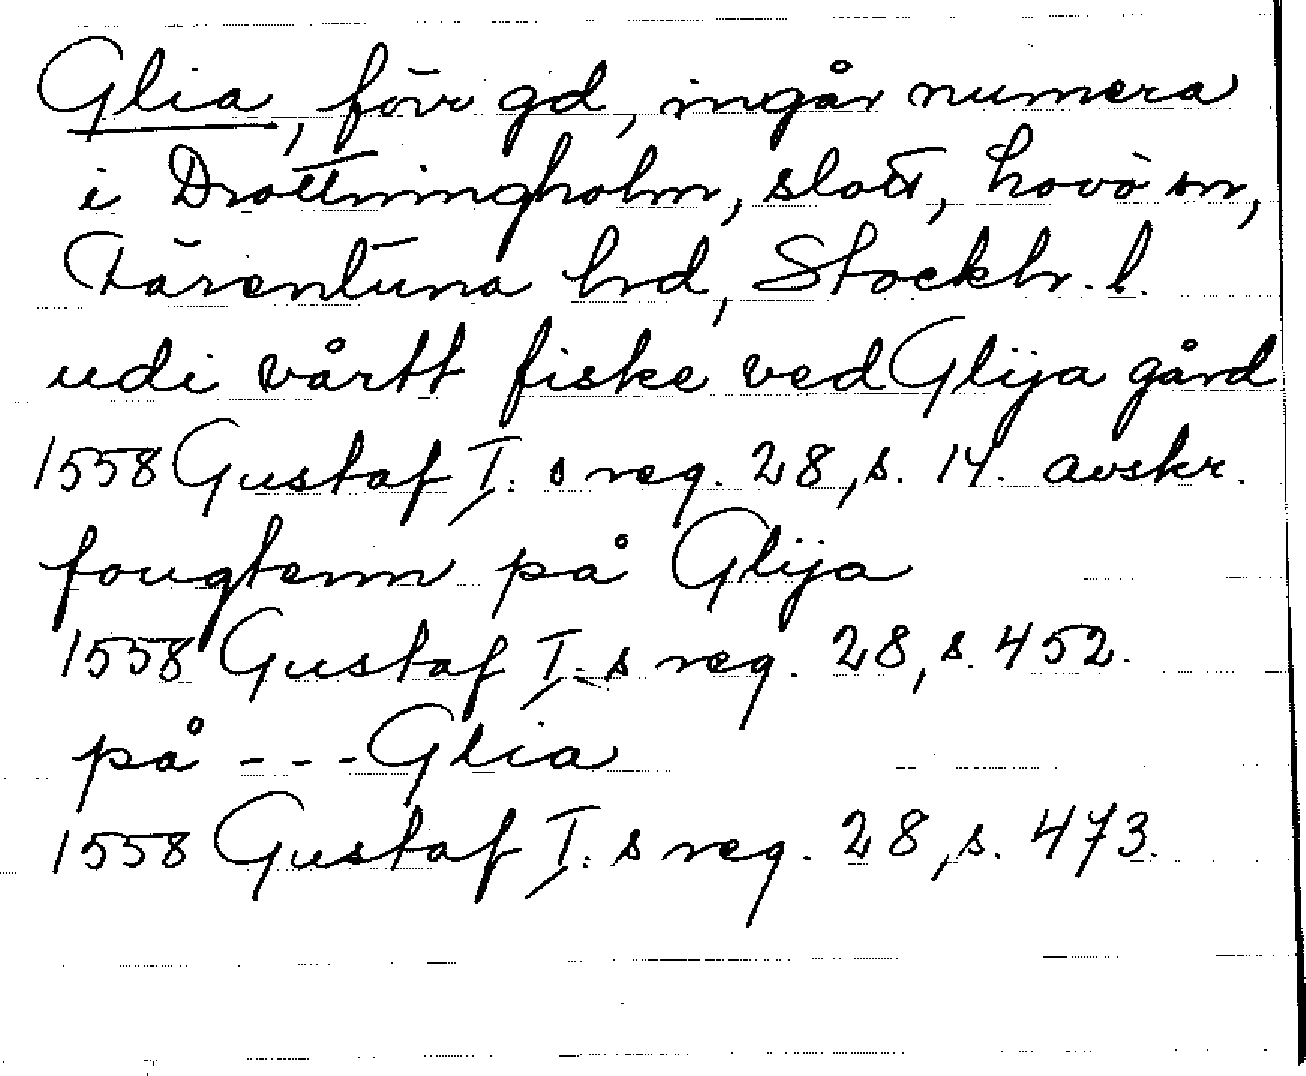 Glia, förr gd, ingår numera
i Drottningholm, slott, Lovö sn,
Färentuna hd, Stockh. l.
udi vårtt fiske ved Glija gård
1558 Gustaf I:s reg. 28, s. 14. avskr.
fougtenn på Glija
1558 Gustaf I:s reg. 28, s. 452.
på --- Glia
1558 Gustaf I:s reg. 28, s. 473.